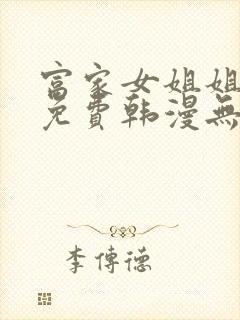 富家女姐姐
免費韩漫無
李傳德